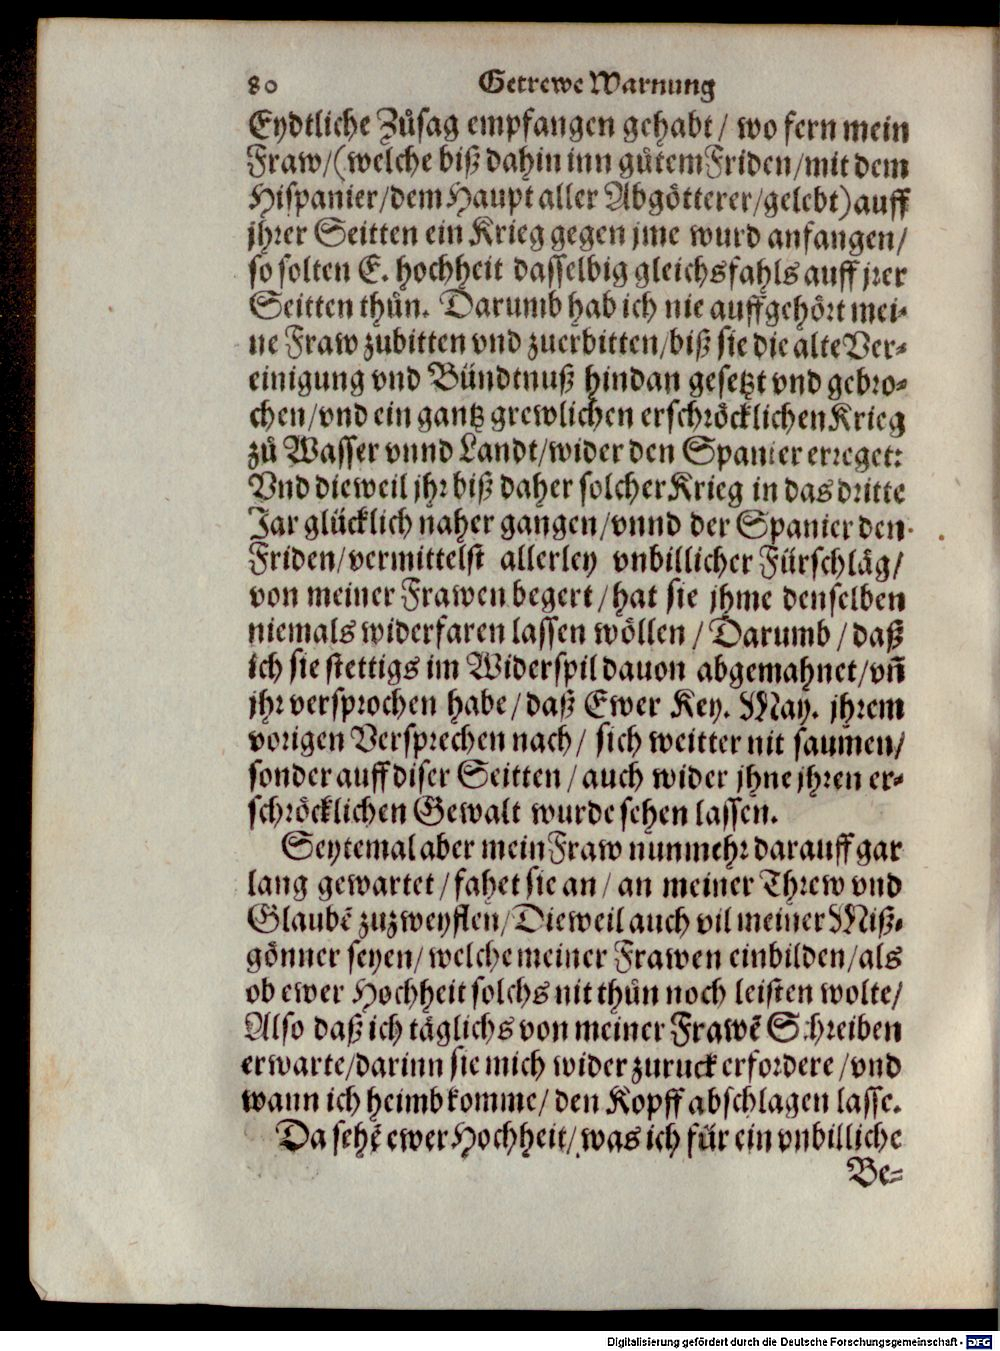 80 Getrewe Warnung
Eydtliche Zůsag empfangen gehabt / wo fern mein
Fraw / (welche biß dahin inn gůtem Friden / mit dem
Hispanier / dem Haupt aller Abgötterer / gelebt) auff
jhrer Seitten ein Krieg gegen jme wurd anfangen /
so solten E. hochheit dasselbig gleichsfahls auff jrer
Seitten thůn. Darumb hab ich nie auffgehört mei-
ne Fraw zubitten vnd zuerbitten / biß sie die alte Ver-
einigung vnd Bündtnuß hindan gesetzt vnd gebro-
chen / vnd ein gantz grewlichen erschröcklichen Krieg
zů Wasser vnnd Landt / wider den Spanier erreget:
Vnd dieweil jhr biß daher solcher Krieg in das dritte
Jar glücklich naher gangen / vnnd der Spanier den
Friden / vermittelst allerley vnbillicher Fürschläg /
von meiner Frawen begert / hat sie jhme denselben
niemals widerfaren lassen wöllen / Darumb / daß
ich sie stettigs im Widerspil dauon abgemahnet / vñ
jhr versprochen habe / daß Ewer Key. May. jhrem
vorigen Versprechen nach / sich weitter nit saumen /
sonder auff diser Seitten / auch wider jhne jhren er-
schröcklichen Gewalt wurde sehen lassen.
Seytemal aber mein Fraw nunmehr darauff gar
lang gewartet / fahet sie an / an meiner Threw vnd
Glaubẽ zuzweyflen / Dieweil auch vil meiner Miß-
gönner seyen / welche meiner Frawen einbilden / als
ob ewer Hochheit solchs nit thůn noch leisten wolte /
Also daß ich täglichs von meiner Frawẽ Schreiben
erwarte / darinn sie mich wider zuruck erfordere / vnd
wann ich heimb komme / den Kopff abschlagen lasse.
Da sehẽ ewer Hochheit / was ich für ein vnbilliche
Be-
Digitalisierung gefördert durch die Deutsche Forschungsgemeinschaft - DFG